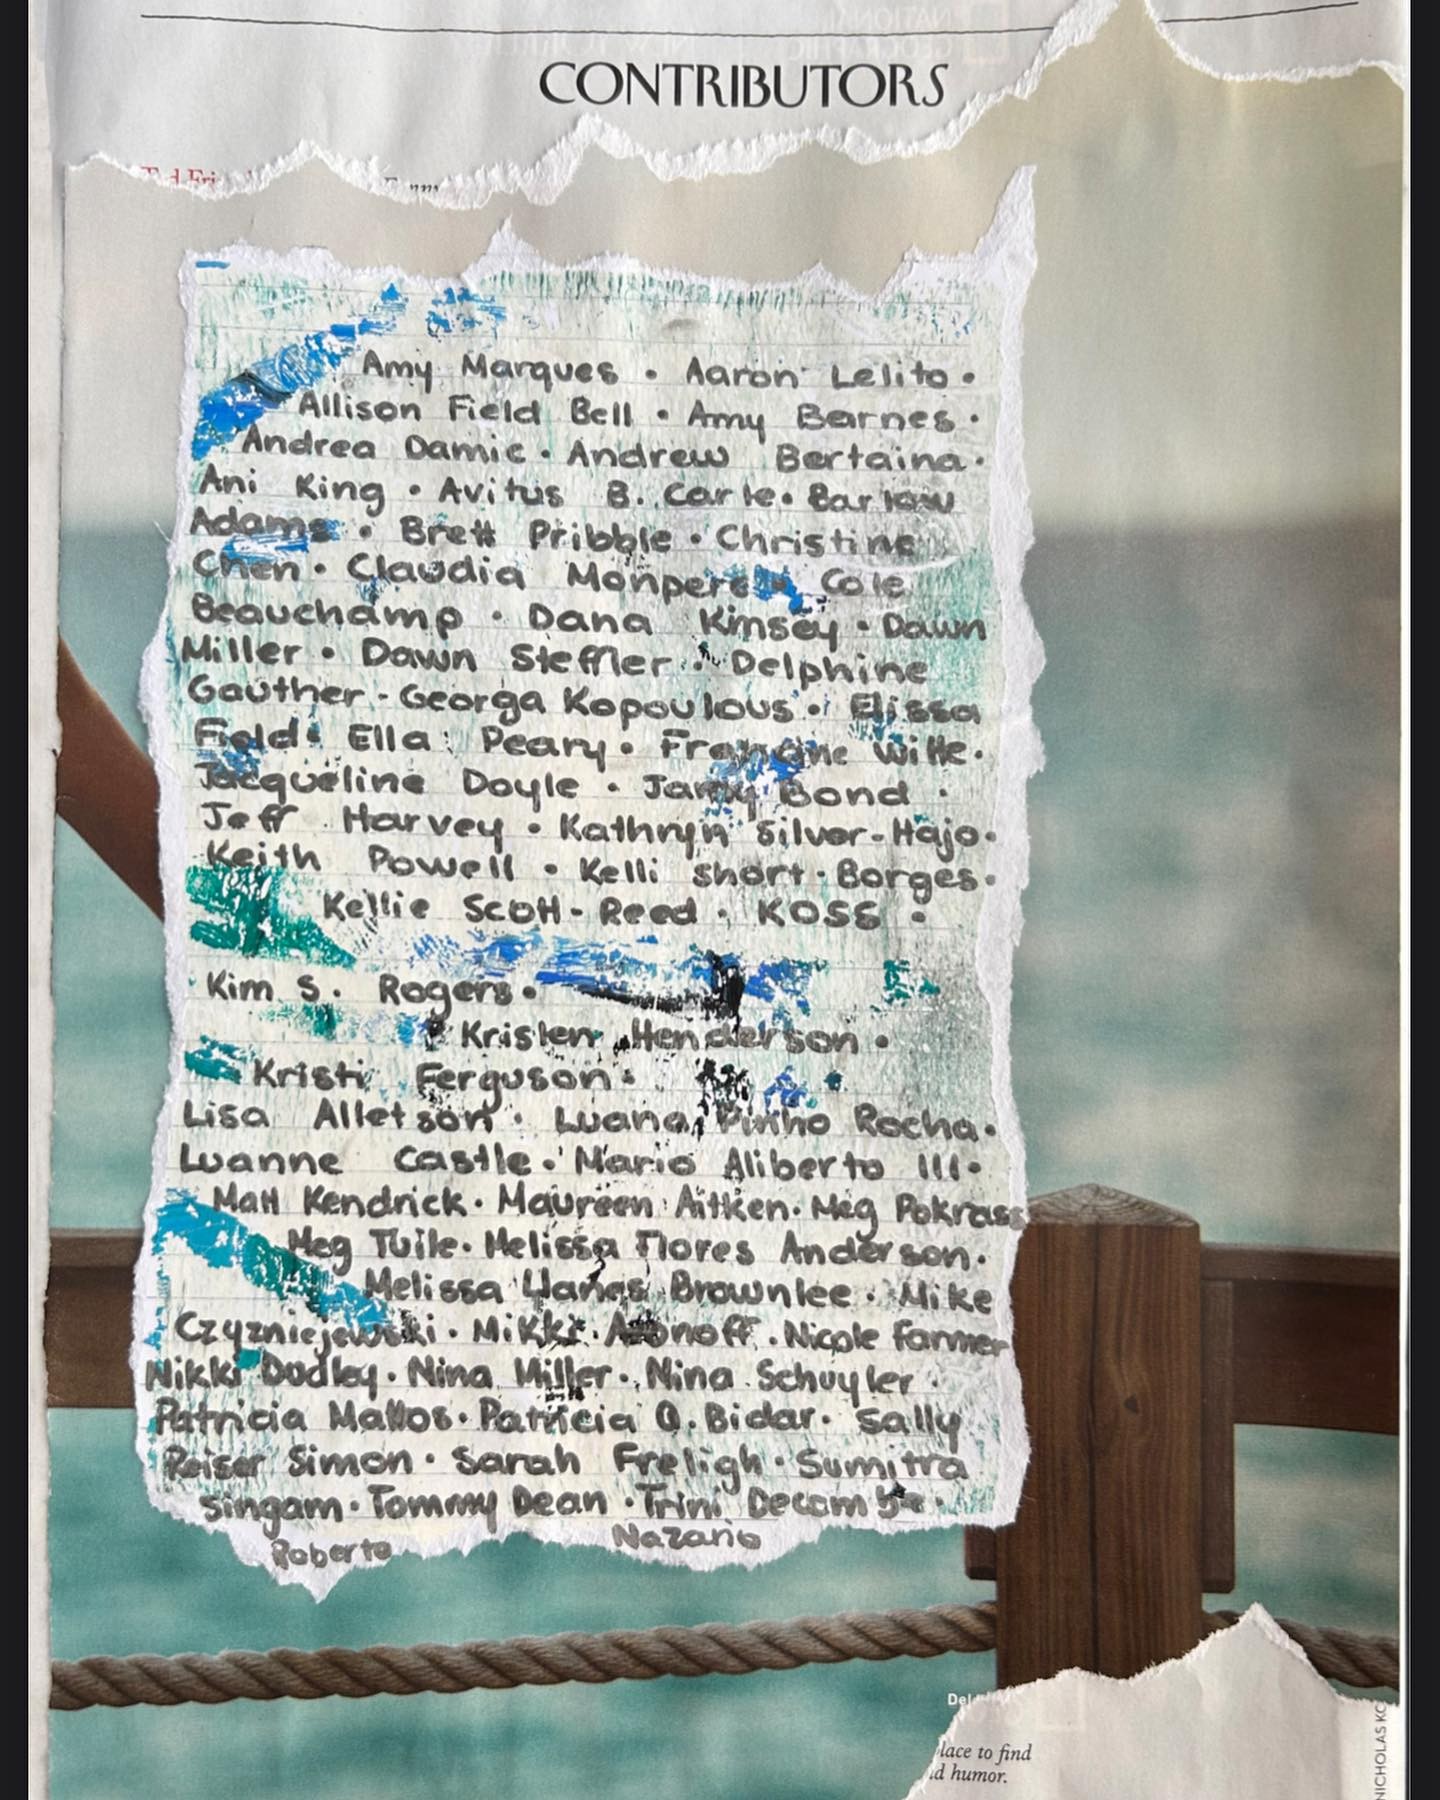 CONTRIBUTORS
Amy Marques • Aaron Lelito •
Allison Field Bell • Amy Barnes •
Andrea Damic • Andrew Bertaina •
Ani King • Avitus B. Carle • Barlow
Adams • Brett Pribble • Christine
Chen • Claudia Monpere • Cole
Beauchamp • Dana Kinsey • Dawn
Miller • Dawn Steffler • Delphine
Gauther - Georga Kopoulous • Elissa
Field • Ella Peary • Francine Witte •
Jacqueline Doyle • Jamy Bond •
Jeff Harvey • Kathryn Silver-Hajo •
Keith Powell • Kelli Short • Borges •
Kellie Scott-Reed • KOSS •
Kim S. Rogers •
Kristen Henderson •
Kristi Ferguson •
Lisa Alletson • Luana Pinho Rocha •
Luanne Castle • Mario Aliberto III •
Matt Kendrick • Maureen Aitken • Meg Pokrass
Meg Tuite • Melissa Flores Anderson •
Melissa Llanes Brownlee • Mike
Czyzniejewski • Mikki Aronoff • Nicole Farmer
Nikki Dudley • Nina Miller • Nina Schuyler •
Patricia Mattos • Patricia Q. Bidar • Sally
Reiser Simon • Sarah Freligh • Sumitra
Singam • Tommy Dean • Trini Decombe •
Roberto Nazario
Del
lace to find
d humor.
NICHOLAS KO